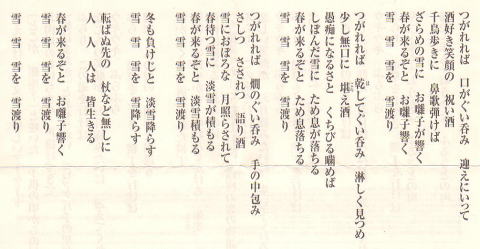 つがれれば　口がぐい呑み　迎えにいって
酒好き笑顔の　祝い酒
千鳥歩きに　鼻歌弾けば
ざらめの雪に　お囃子が響く
春が来るぞと　お囃子響く
雪　雪　雪を　雪渡り
つがれれば　乾してぐい呑み　淋しく見つめ
少し無口に　堪え酒
愚痴になるさと　くちびる噛めば
しばんだ雪に　ため息が落ちる
春が来るぞと　ため息落ちる
雪　雪　雪を　雪渡り
つがれれば　燗のぐい呑み　手の中包み
さしつ　さされつ　語り酒
雪におぼろな　月照らされて
春待つ雪に　淡雪が積もる
春が来るぞと　淡雪積もる
雪　雪　雪を　雪渡り
冬も負けじと　淡雪降らす
雪　雪　雪を　雪降らす
転ばぬ先の　杖など無しに
人　人　人は　皆生きる
春が来るぞと　お囃子響く
雪　雪　雪を　雪渡り